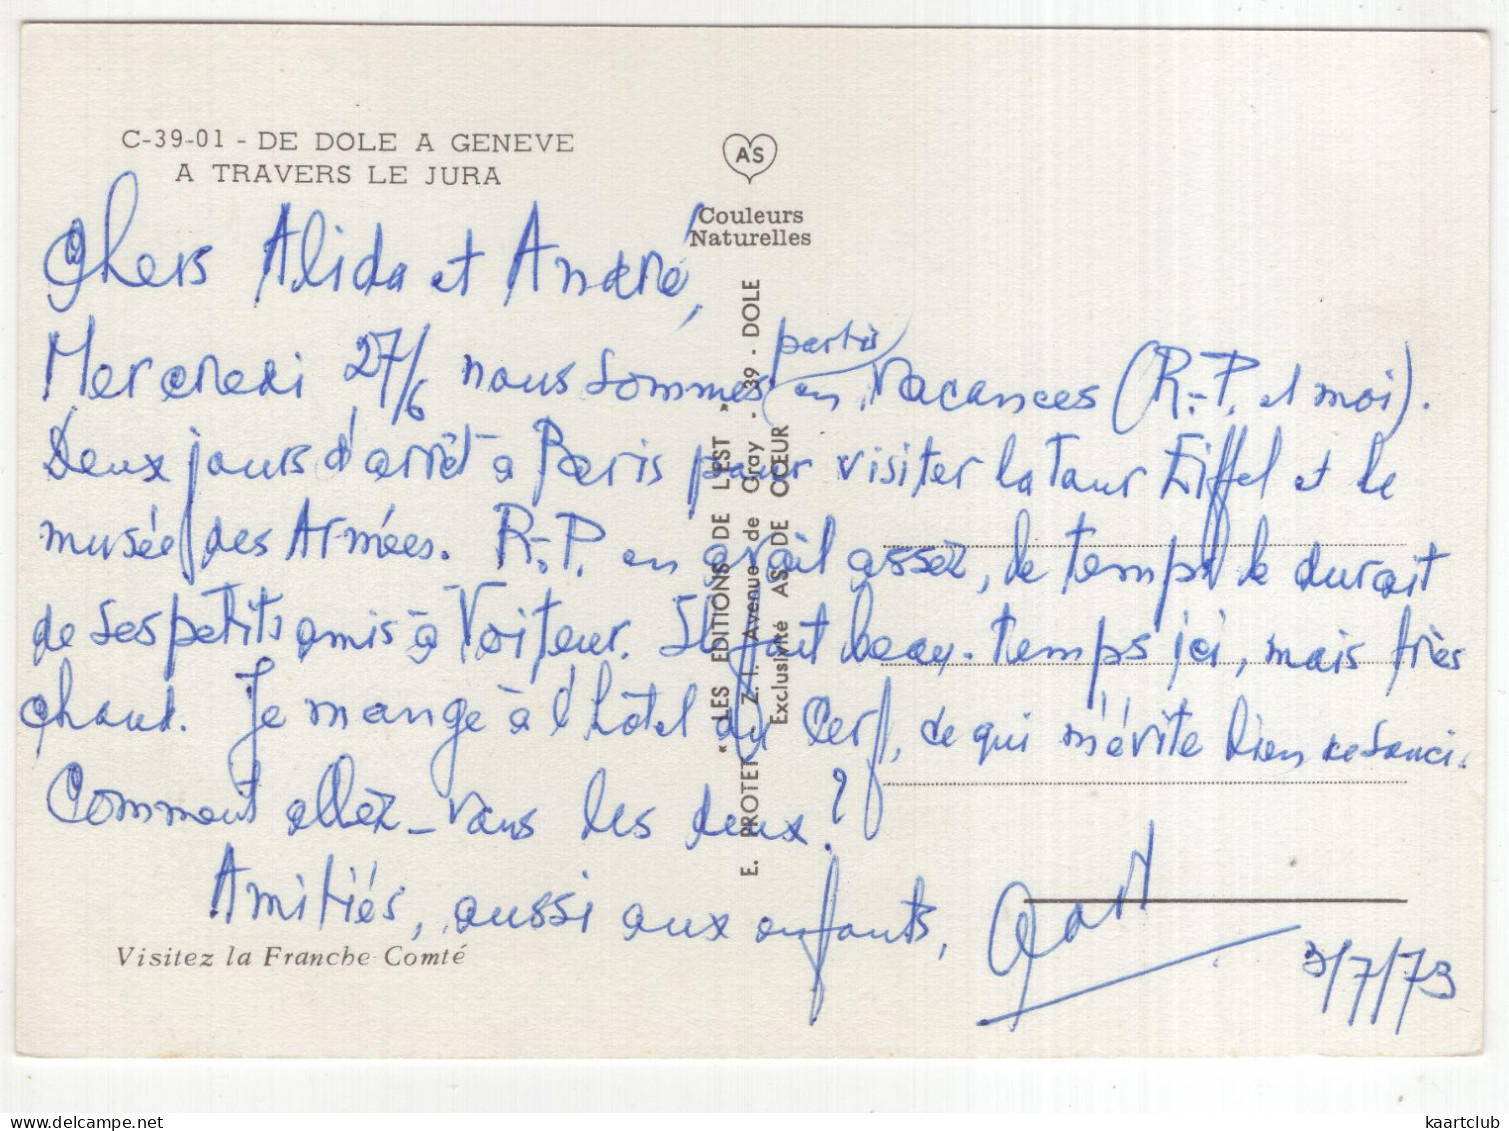 C-39-01 - DE DOLE A GENEVE
A TRAVERS LE JURA
AS
Couleurs
Naturelles
Chers Alida et André,
Mercredi 27/6 nous sommes partis en vacances (R.-P. et moi).
Deux jours d'arrêt à Paris pour visiter la Tour Eiffel et le
musée des Armées. R.-P. en avait assez, le temps le durait
de ses petits amis à Voiteur. Il fait beau temps ici, mais très
chaud. Je mange à l'hôtel du Cerf, ce qui m'évite bien de souci.
Comment allez-vous les deux?
Amitiés, aussi aux enfants,
3/7/73
E. PROTET « LES EDITIONS DE L'EST »
Z. I. Avenue de Gray - 39 - DOLE
Exclusivité AS DE CŒUR
Visitez la Franche-Comté
kaartclub